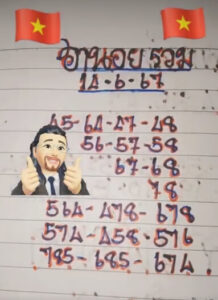 ฮานอย รวม
14-6-67
45-64-47-48
56-57-58
67-68
78
564-478-678
574-458-576
785-685-674